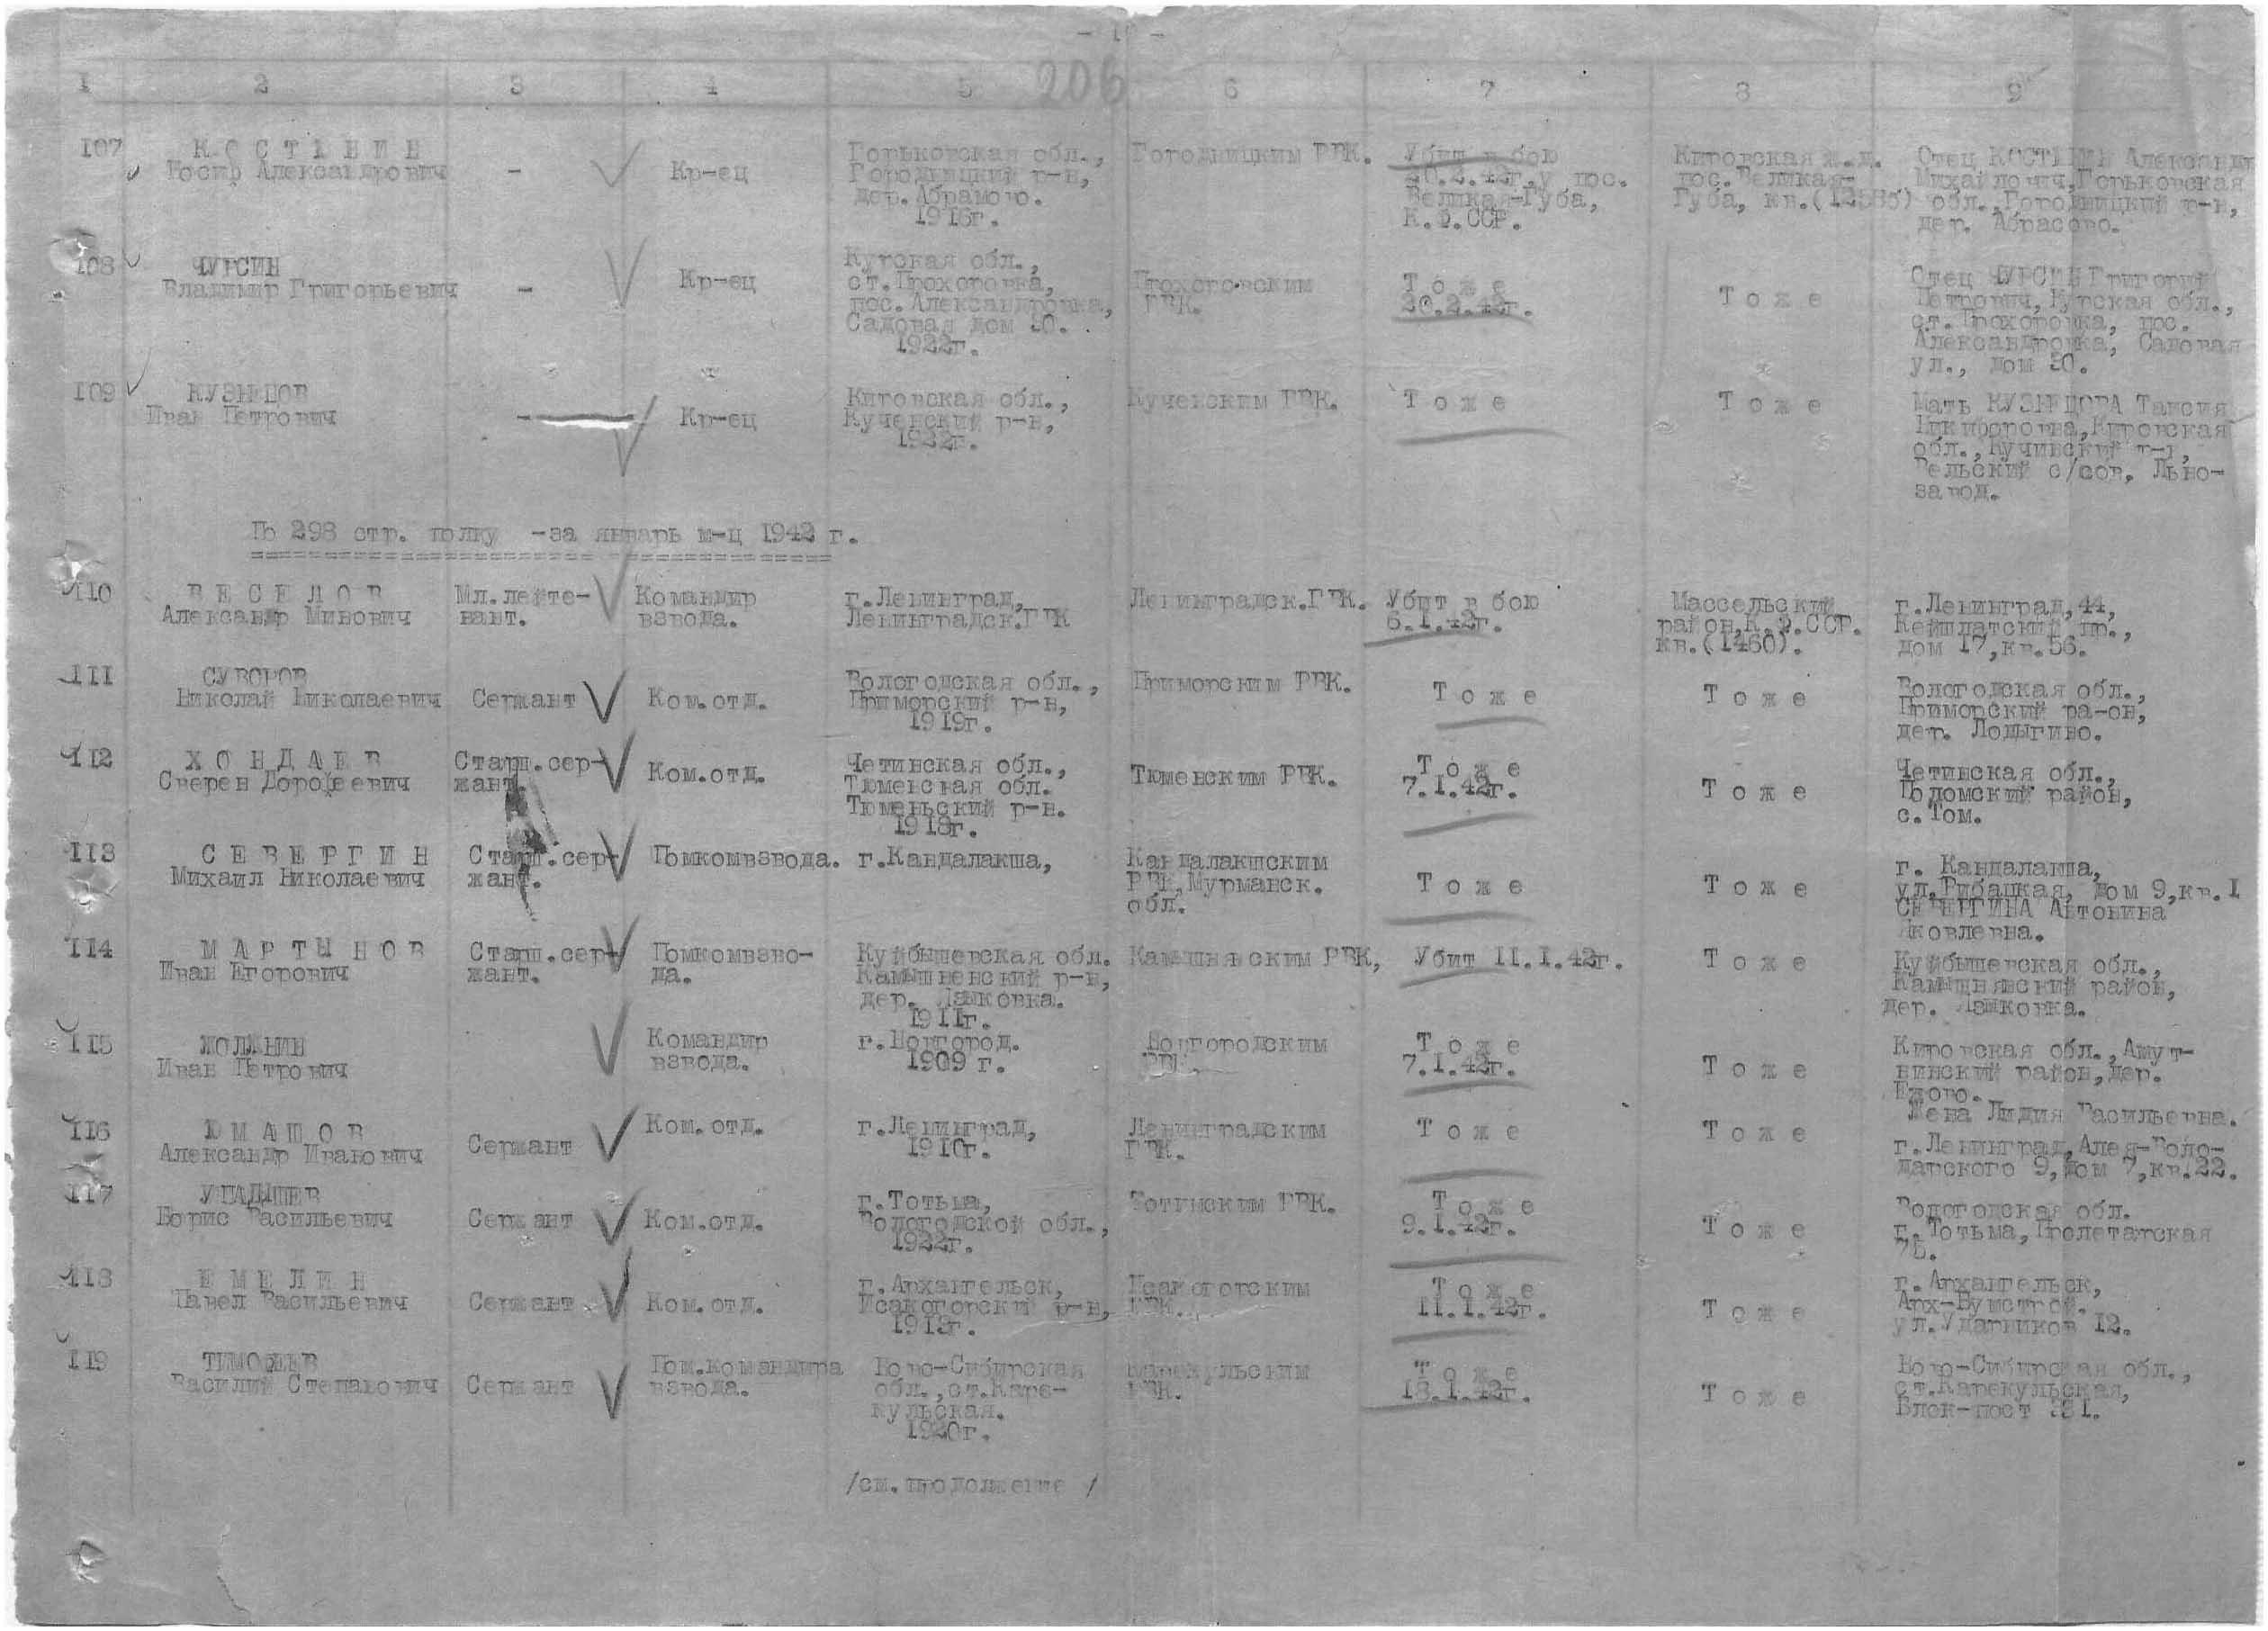 206
1 2 3 4 5 6 7 8 9
107
Александрович
-
Кр-ец
Горьковская обл.,
Городецкий р-н,
1916г.
РВК.
Убит в бою
20.2.42г. у пос.
Великая-Губа,
К.Ф.ССР.
Кировская ж.д.
пос. Великая-
Губа, кв.
Отец
Михайлович, Горьковская
обл.,
дер. Абрасово.
108
ЧУРСИН
Владимир Григорьевич
-
Кр-ец
Курская обл.,
ст. Прохоровка,
пос. Александровка,
Садовая дом
1922г.
Прохоровским
РВК.
Т о ж е
20.2.42г.
Т о ж е
Отец ЧУРСИН Григорий
Петрович, Курская обл.,
ст. Прохоровка, пос.
Александровка, Садовая
ул., дом
109
КУЗНЕЦОВ
Иван Петрович
-
Кр-ец
Кировская обл.,
Кученский р-н,
1922г.
Кученским РВК.
Т о ж е
Т о ж е
Мать КУЗНЕЦОВА Таисия
Никифоровна, Кировская
обл., Кучинский р-н,
с/сов. Льно-
завод.
По 298 стр. полку - за январь м-ц 1942 г.
110
В Е С Е Л О В
Александр Минович
Мл. лейте-
нант.
Командир
взвода.
г. Ленинград,
Ленинградск. ГВК
Ленинградск. ГВК.
Убит в бою
6.I.42г.
Массельский
район, К.Ф.ССР.
кв. (1460).
г. Ленинград, 44,
пр.,
дом 17, кв. 56.
111
СУВОРОВ
Николай Николаевич
Сержант
Ком. отд.
Вологодская обл.,
Приморский р-н,
1919г.
Приморским РВК.
Т о ж е
Т о ж е
Вологодская обл.,
Приморский ра-он,
дер. Лодыгино.
112
Х О Н Д А Е В
Сверен Дорофеевич
Старш. сер-
жант.
Ком. отд.
Четинская обл.,
Тюменская обл.
Тюменьский р-н.
1918г.
Тюменским РВК.
Т о ж е
7.I.42г.
Т о ж е
Четинская обл.,
район,
с. Том.
113
С Е В Е Р Г И Н
Михаил Николаевич
Старш. сер-
жант.
Помкомвзвода.
г. Кандалакша,
Кандалакшским
РВК, Мурманск.
обл.
Т о ж е
Т о ж е
г. Кандалакша,
ул. Рибацкая, дом 9, кв. I
СЕВЕРГИНА Антонина
Яковлевна.
114
М А Р Т Ы Н О В
Иван Егорович
Старш. сер-
жант.
Помкомвзво-
да.
Куйбышевская обл.
Камышненский р-н,
дер. Лашковка.
1911г.
Камышнявским РВК,
Убит II.I.42г.
Т о ж е
Куйбышевская обл.,
Камышнявский район,
дер. Лашковка.
115
Иван Петрович
Командир
взвода.
г. Новгород.
1909 г.
Новгородским
РВК.
Т о ж е
7.I.42г.
Т о ж е
Кировская обл., Амут-
нинский район, дер.
Ежово.
Жена Лидия Васильевна.
116
Ю М А Ш О В
Александр Иванович
Сержант
Ком. отд.
г. Ленинград,
1910г.
Ленинградским
ГВК.
Т о ж е
Т о ж е
г. Ленинград, Алея-Воло-
дарского 9, дом 7, кв. 22.
117
УПАДЫШЕВ
Борис Васильевич
Сержант
Ком. отд.
г. Тотьма,
Вологодской обл.,
1922г.
Тотимским РВК.
Т о ж е
9.I.42г.
Т о ж е
Вологодская обл.
г. Тотьма, Пролетарская
118
Е М Е Л И Н
Павел Васильевич
Сержант
Ком. отд.
г. Архангельск,
Исакогорский р-н,
Исакогорским
РВК.
Т о ж е
11.I.42г.
Т о ж е
г. Архангельск,
Арх-Бумстрой.
ул. Ударников 12.
119
ТИМОФЕЕВ
Василий Степанович
Сержант
Пом. командира
взвода.
Ново-Сибирская
обл., ст. Каре-
кульская.
1920г.
Карекульским
РВК.
Т о ж е
18.I.42г.
Т о ж е
Ново-Сибирская обл.,
ст. Карекульская,
Блок-пост
/см. продолжение /